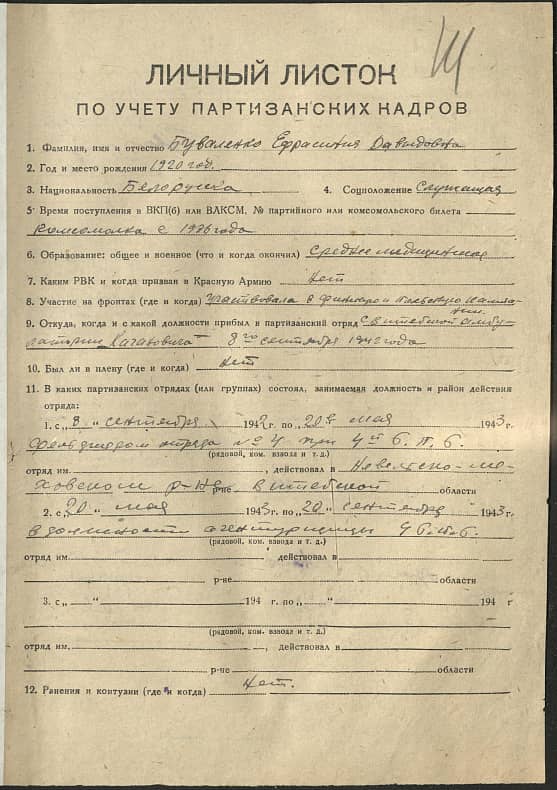 ЛИЧНЫЙ ЛИСТОК
ПО УЧЕТУ ПАРТИЗАНСКИХ КАДРОВ
1. Фамилия, имя и отчество Буваленко Ефрасиния Давыдовна
2. Год и место рождения 1920 год.
3. Национальность Белоруска 4. Соцположение Служащая
5. Время поступления в ВКП(б) или ВЛКСМ, № партийного или комсомольского билета
комсомолка с 1936 года
6. Образование: общее и военное (что и когда окончил) Средне медицинское
7. Каким РВК и когда призван в Красную Армию Нет
8. Участие на фронтах (где и когда) Участвовала в финскую и польскую кампа-
нии.
9. Откуда, когда и с какой должности прибыл в партизанский отряд с витебской амбу-
латории Кагановича 8го сентября 1942 года
10. Был ли в плену (где и когда) нет
11. В каких партизанских отрядах (или группах) состоял, занимаемая должность и район действия
отряда:
1. с „8„ сентября 1942 г. по „20„ мая 1943 г.
Фельдшером отряда № 4 при 4й б. п. б.
(рядовой, ком. взвода и т. д.)
отряд им. , действовал в
р-не Витебской области
2. с „20„ мая 1943 г. по „20„ сентября 1943 г.
в должности агентурщицы 4 б.п.б.
(рядовой, ком. взвода и т. д.)
отряд им. действовал в
р-не области
3. с „ “ 194 г. по „ “ 194 г
(рядовой, ком. взвода и т. д.)
отряд им. , действовал в
р-не области
12. Ранения и контузии (где и когда) Нет.